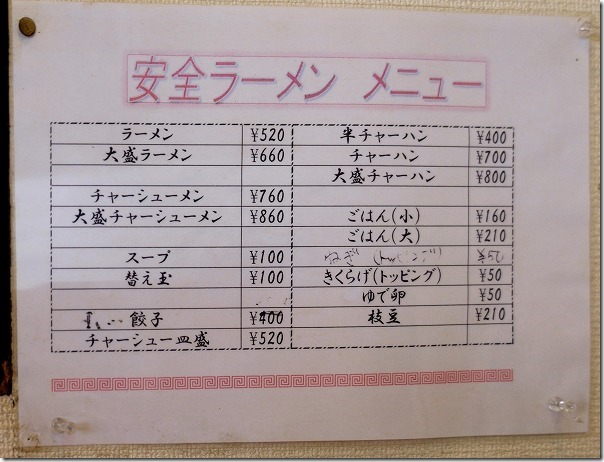 安全ラーメン メニュー
ラーメン ¥520
大盛ラーメン ¥660
チャーシューメン ¥760
大盛チャーシューメン ¥860
スープ ¥100
替え玉 ¥100
餃子 ¥400
チャーシュー皿盛 ¥520
半チャーハン ¥400
チャーハン ¥700
大盛チャーハン ¥800
ごはん(小) ¥160
ごはん(大) ¥210
ねぎ (トッピング) ¥50
きくらげ(トッピング) ¥50
ゆで卵 ¥50
枝豆 ¥210